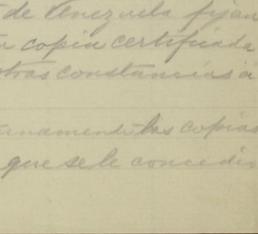 de Venezuela fijan
copia certificada
otras constancias a
las copias
que se le concedio